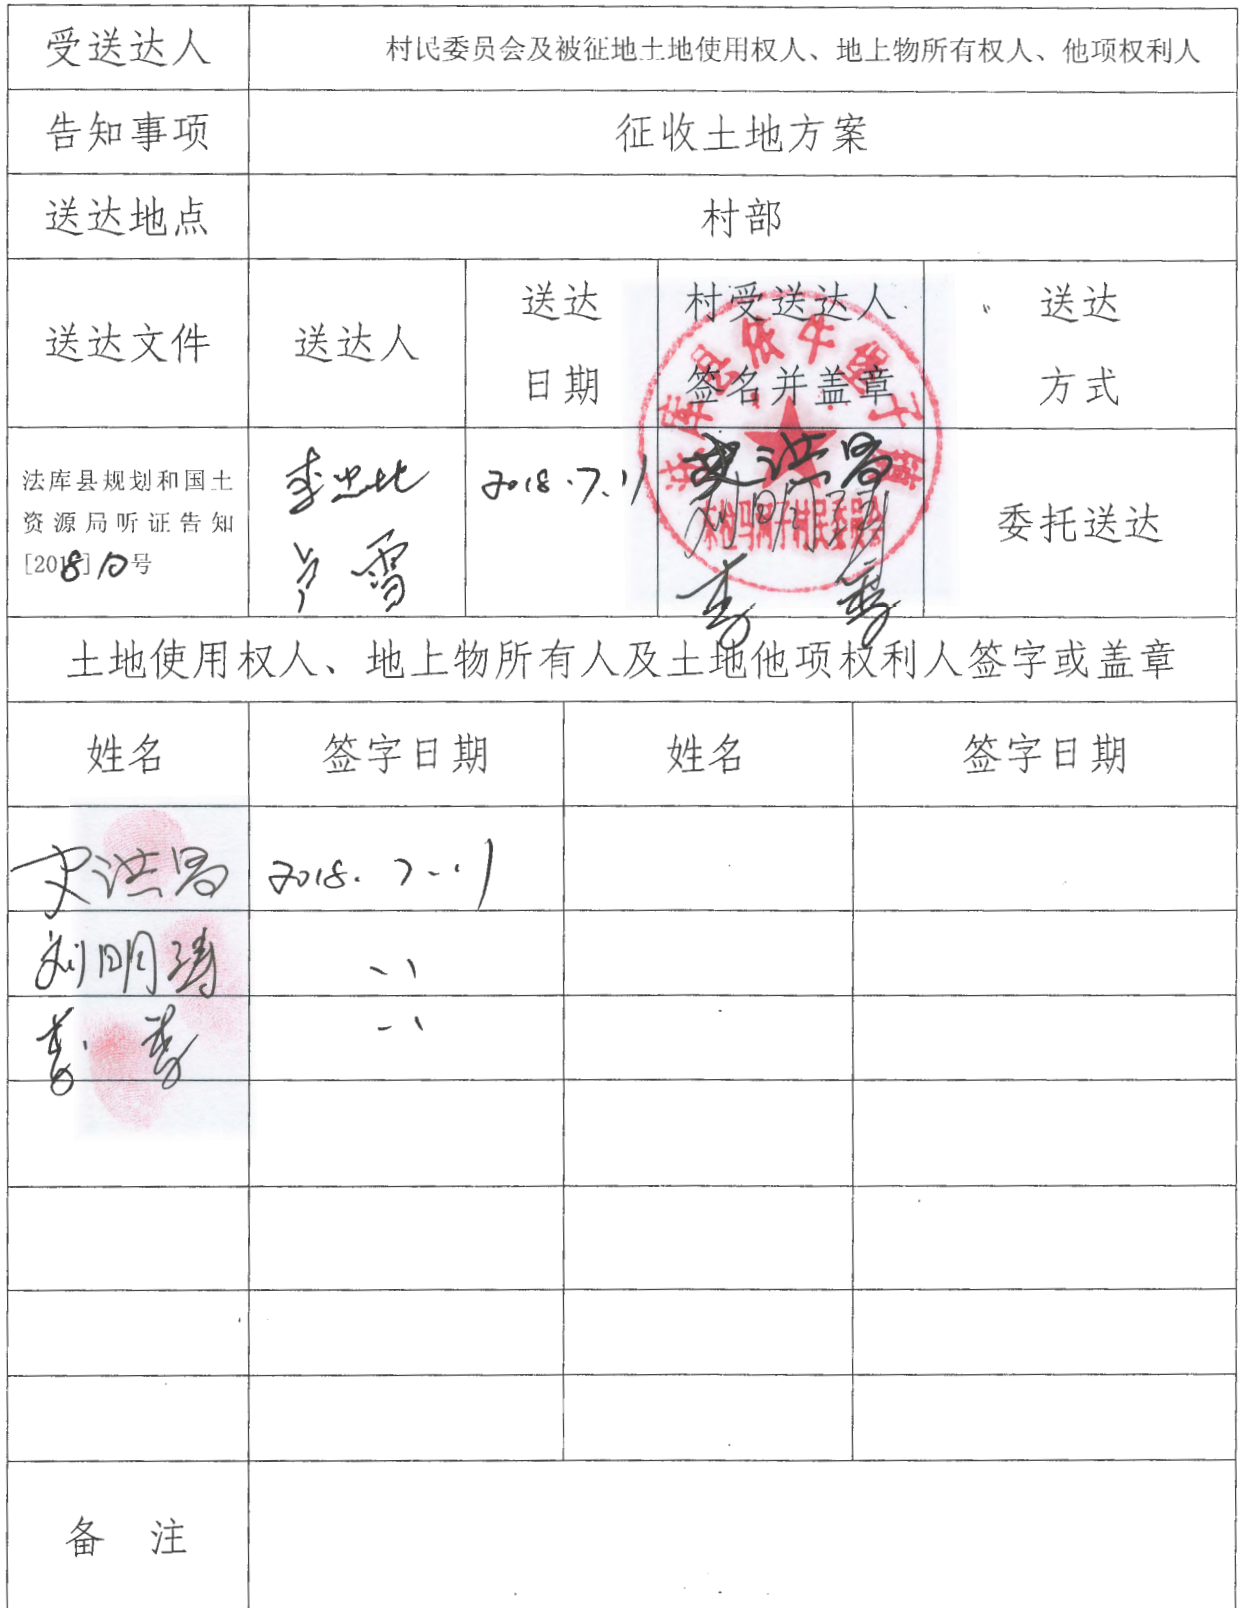 受送达人
村民委员会及被征地土地使用权人、地上物所有权人、他项权利人
告知事项
征收土地方案
送达地点
村部
送达文件
送达人
送达
日期
村受送达人
签名并盖章
送达
方式
法库县规划和国土
资源局听证告知
[2018]10号
李忠北
卢雪
2018.7.11
史洪昌
刘明涛
法库县依牛堡子
村民委员会
委托送达
土地使用权人、地上物所有人及土地他项权利人签字或盖章
姓名
签字日期
姓名
签字日期
史洪昌
2018.7.11
刘明涛
备 注